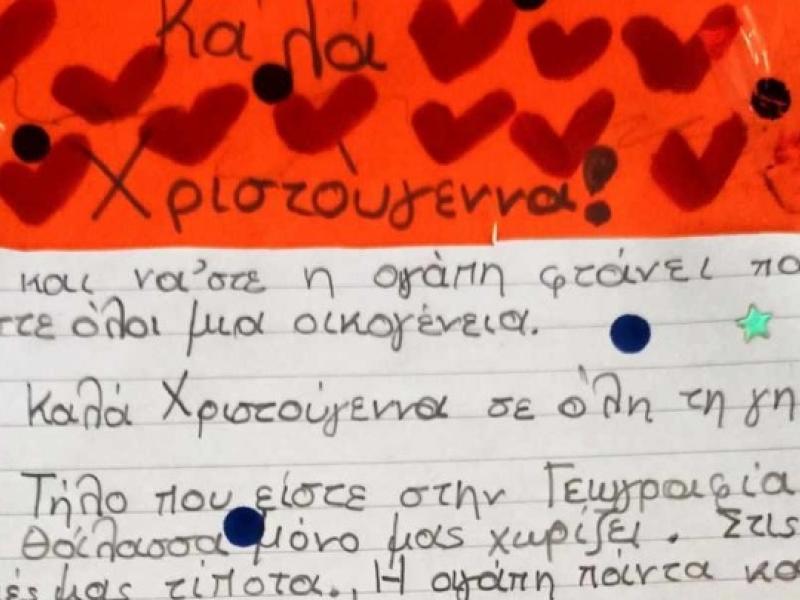 Καλά
Χριστούγεννα!
και να'στε η αγάπη φτάνει πο
τε όλοι μια οικογένεια.
Καλά Χριστούγεννα σε όλη τη γη
Τήλο που είστε στην Γεωγραφία
θάλασσα μόνο μας χωρίζει. Στις
ές μας τίποτα.. Η αγάπη πάντα κα